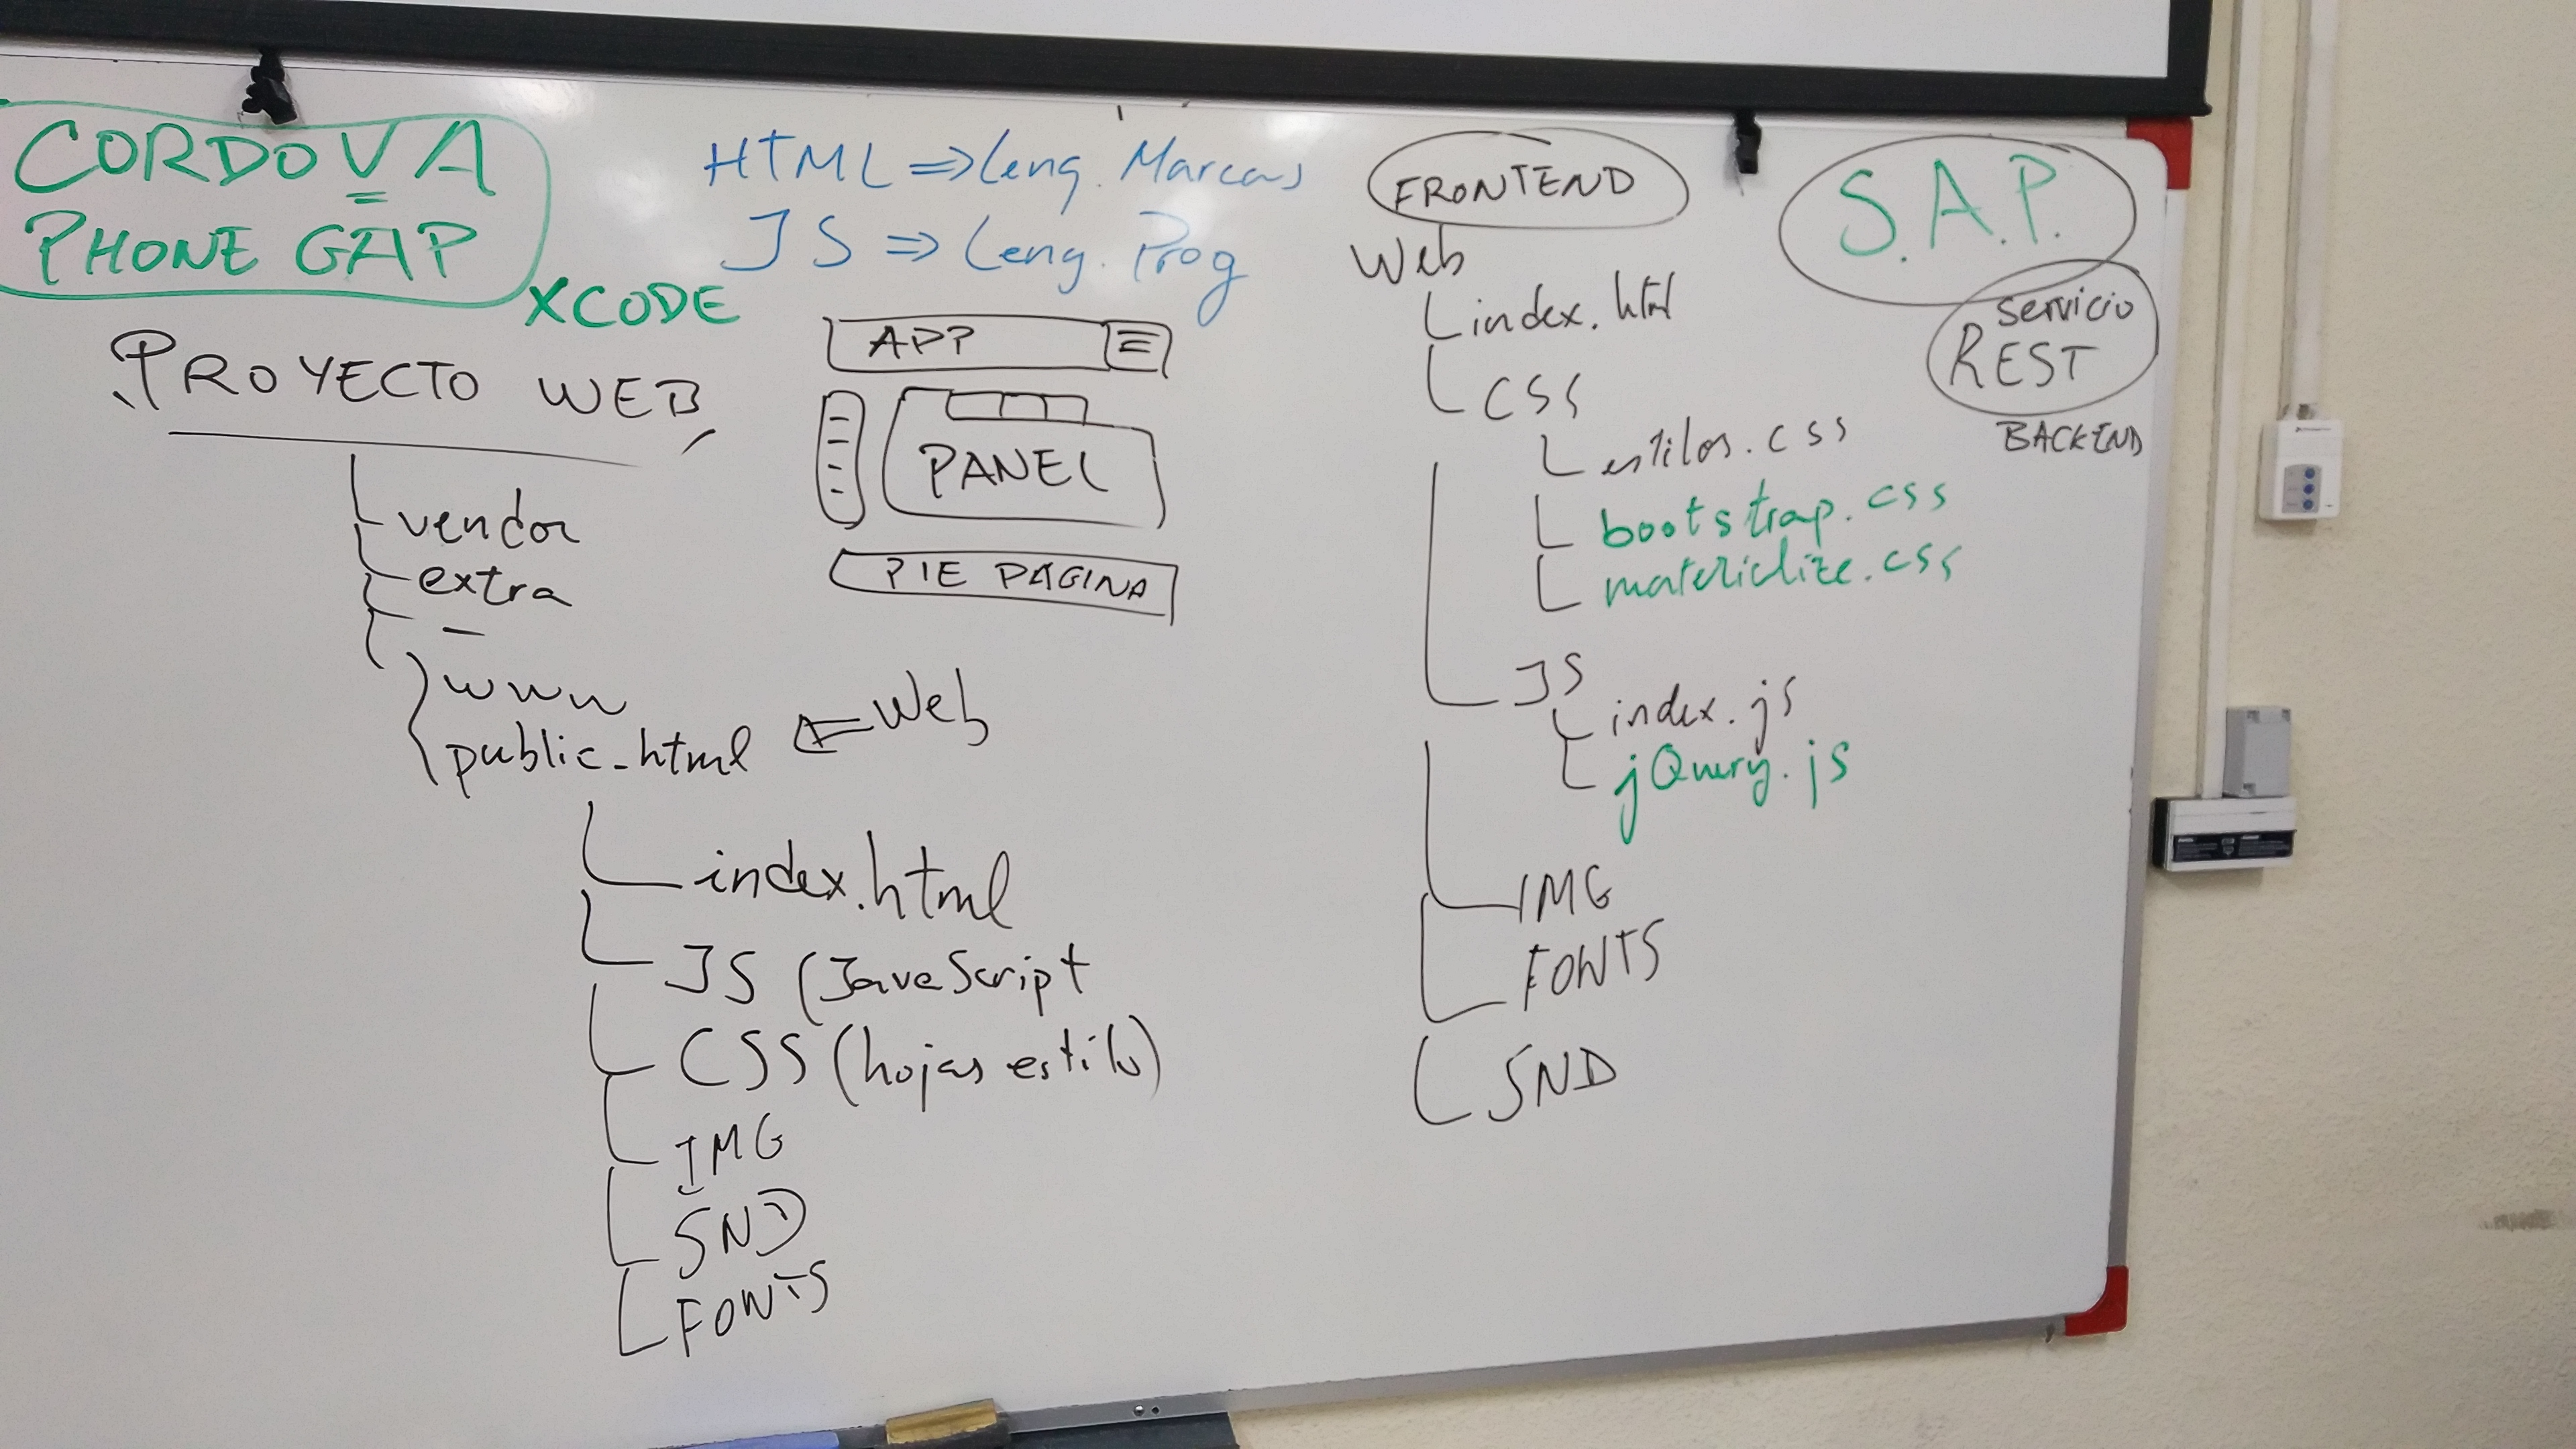 CORDOVA
PHONE GAP
XCODE
PROYECTO WEB
vendor
extra
www
public_html
Web
index.html
JS (JavaScript
CSS (hojas estilo)
IMG
SND
FONTS
HTML => Leng. Marcas
JS => Leng. Prog
APP
PANEL
PIE PAGINA
FRONTEND
Web
index.html
CSS
estilos.css
bootstrap.css
materialize.css
JS
index.js
jQuery.js
IMG
FONTS
SND
S.A.P.
servicio
REST
BACKEND